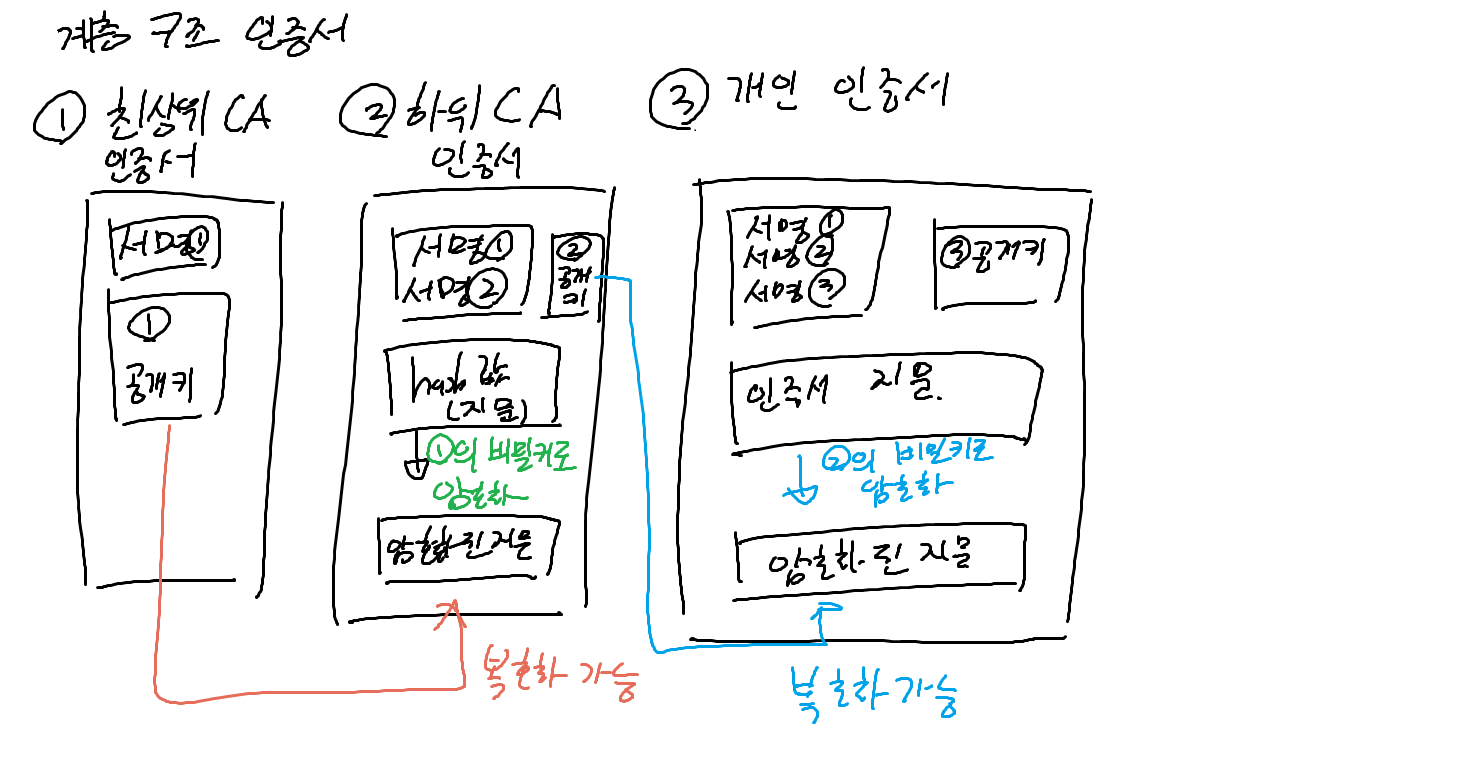 계층 구조 인증서
① 최상위 CA
인증서
서명①
①
공개키
② 하위 CA
인증서
서명①
서명②
②
공개
키
hash 값
(지문)
①의 비밀키로
암호화
암호화된 지문
복호화 가능
③ 개인 인증서
서명①
서명②
서명③
③공개키
인증서 지문.
②의 비밀키로
암호화
암호화된 지문
복호화 가능